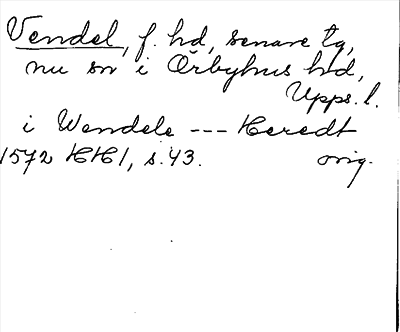 Vendel, f. hd, senare tg,
nu sn i Örbyhus hd,
Upps. l.
i Wendele --- Heredt
1572 HH1, s. 43. orig.